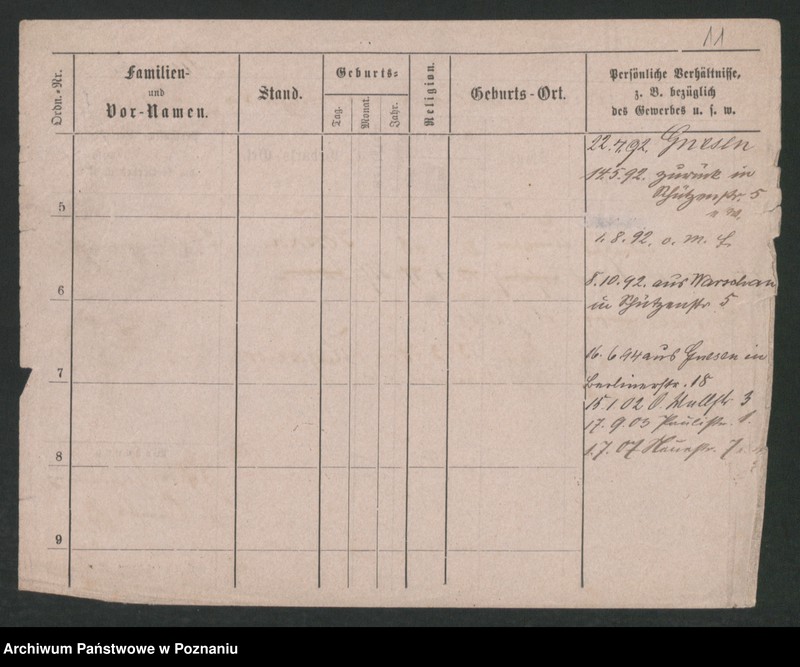 11
Ordn.-Nr.
Familien-
und
Vor-Namen.
Stand.
Geburts-
Tag.
Monat.
Jahr.
Religion.
Geburts-Ort.
Persönliche Verhältnisse,
z. B. bezüglich
des Gewerbes u. s. w.
22.7.92 Gnesen
14.5.92. zurück in
Schützenstr. 5
5
1.8.92. o. m. f.
8.10.92. aus
6
in Schützenstr 5
16.6 94 aus Gnesen in
7
Berlinerstr. 18
15.1.02 O. Wallstr 3
17.9.03 Paulistr. 1.
1.7.07 Neuestr. 7
8
9
Archiwum Państwowe w Poznaniu